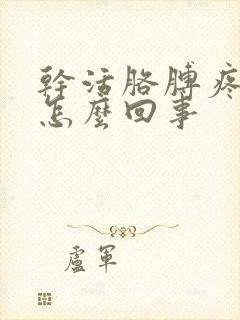 幹活胳膊疼
怎麼回事
盧軍